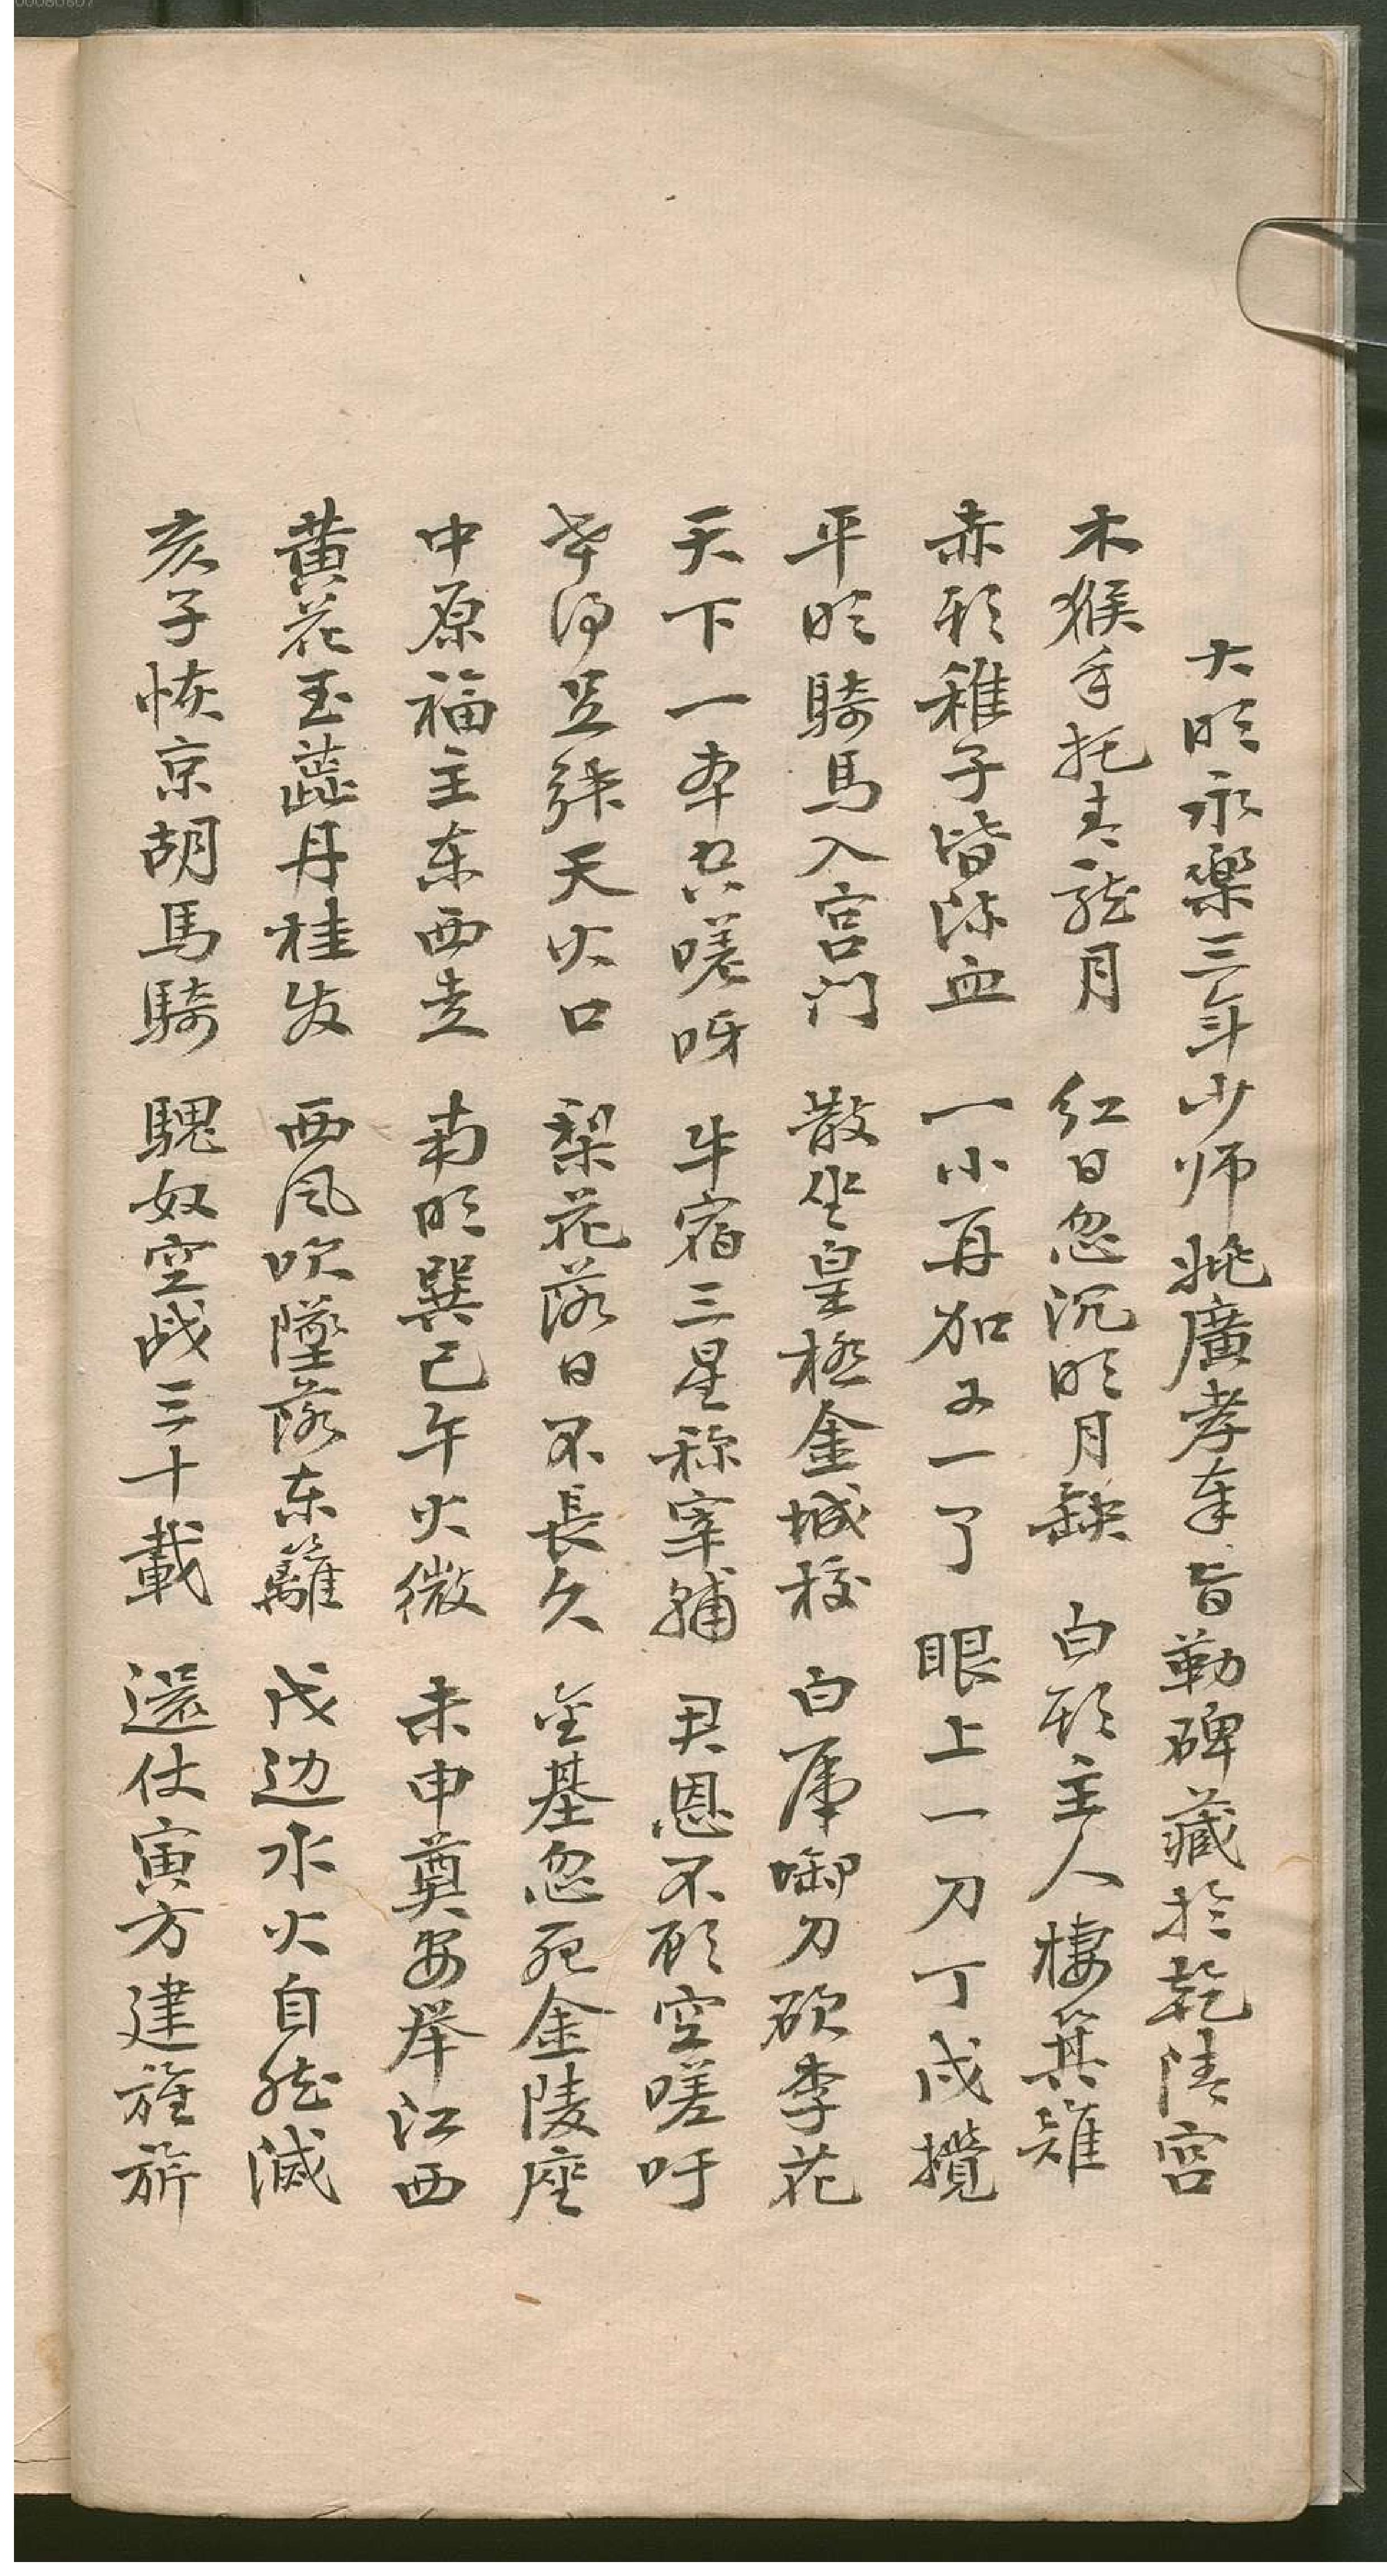 大明永樂三年少师姚廣孝奉旨勒碑藏於乾清宫
木猴手托青龍月 红日忽沉明月缺 白頭主人棲箕雉
赤形稚子皆流血 一小再加又一了 眼上一刀丁戊攪
平明騎馬入宫门 散坐皇極金城移 白虎啣刀砍李花
天下一本共嗟呀 牛宿三星称宰輔 君恩不顧空嗟吁
张天火口 梨花落日不長久 金基忽死金陵座
中原福主东西走 南明巽己午火微 未申奠安举江西
黄花玉蕋丹桂发 西风吹墜落东籬 戊边水火自然滅
亥子恢京胡馬騎 騩奴空战三十載 還仕寅方建旌旂